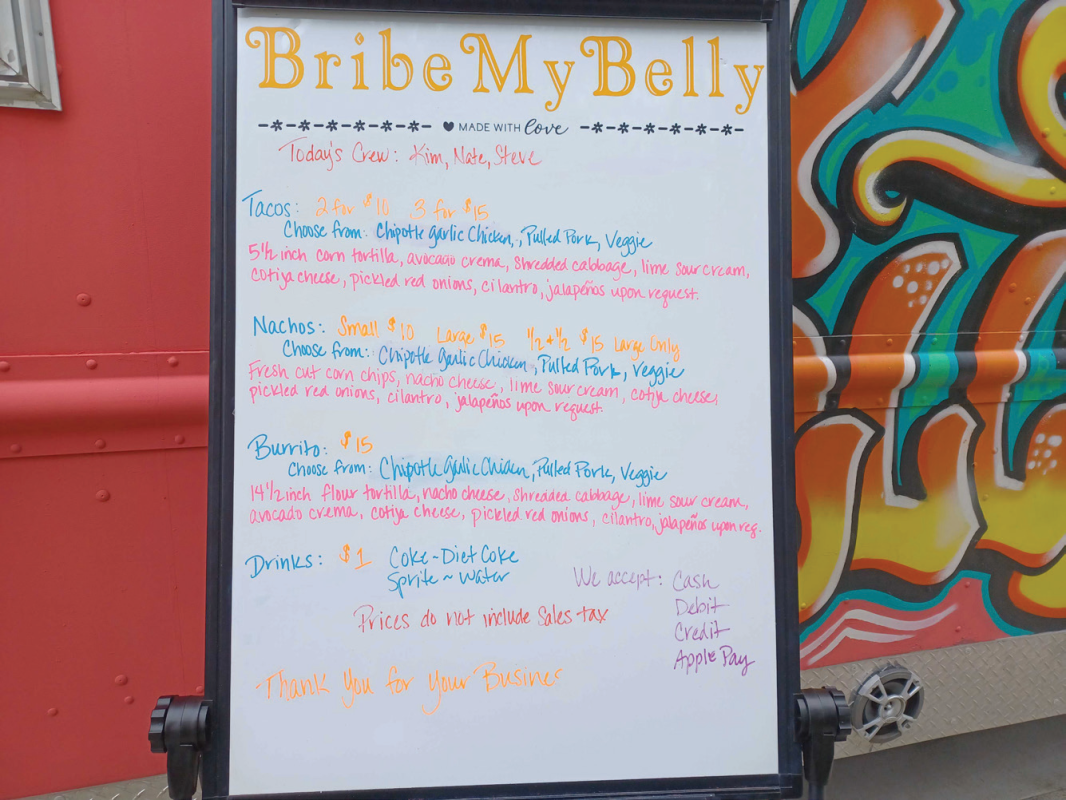 BribeMyBelly
MADE WITH love
Today's Crew: Kim, Nate, Steve
Tacos: 2 for $10 3 for $15
Choose from: Chipotle garlic Chicken, Pulled Pork, Veggie
5 1/2 inch corn tortilla, avocado crema, shredded cabbage, lime sour cream,
cotija cheese, pickled red onions, cilantro, jalapeños upon request.
Nachos: Small $10 Large $15 1/2 + 1/2 $15 Large Only
Choose from: Chipotle garlic Chicken, Pulled Pork, Veggie
Fresh cut corn chips, nacho cheese, lime sour cream, cotija cheese,
pickled red onions, cilantro, jalapeños upon request.
Burrito: $15
Choose from: Chipotle garlic Chicken, Pulled Pork, Veggie
14 1/2 inch flour tortilla, nacho cheese, shredded cabbage, lime sour cream,
avocado crema, cotija cheese, pickled red onions, cilantro, jalapeños upon req.
Drinks: $1 Coke - Diet Coke
Sprite ~ Water
We accept: Cash
Debit
Credit
Apple Pay
Prices do not include Sales tax
Thank You for your Busines